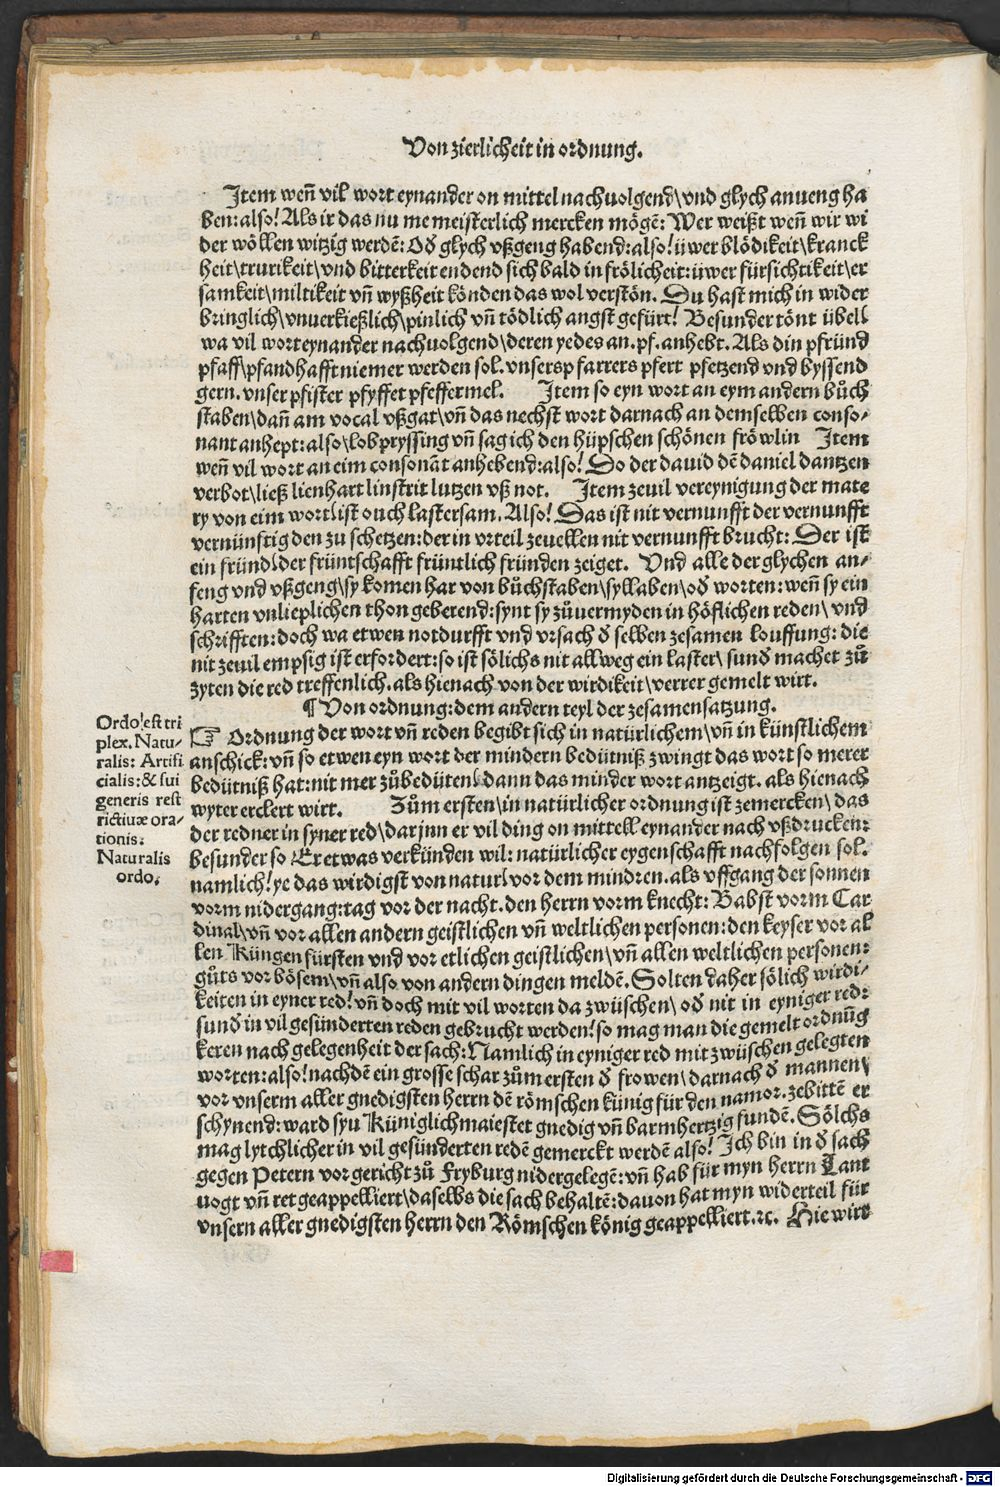 Von zierlicheit in ordnung.
Item weñ vil wort eynander on mittel nachuolgend\vnd glych anueng ha
ben:also! Als ir das nu me meisterlich mercken mögē: Wer weißt weñ wir wi
der wöllen witzig werdē: Oð glych vßgeng habend:also!üwer blödikeit\kranck
heit\trurikeit\vnd bitterkeit endend sich bald in frölicheit:üwer fürsichtikeit\er
samkeit\miltikeit vñ wyßheit könden das wol verstön. Du hast mich in wider
bringlich\vnuerkießlich\pinlich vñ tödlich angst gefürt! Besunder tönt übel\
wa vil wort eynander nachuolgend\deren yedes an.pf.anhebt. Als din pfründ
pfaff\pfandhafft niemer werden sol.vnsers pfarrers pfert pfetzend vnd byssend
gern.vnser pfister pfyffet pfeffermel. Item so eyn wort an eym andern bůch
staben\dañ am vocal vßgat\vñ das nechst wort darnach an demselben conso-
nant anhept:also\lob pryssing vñ sag ich den hüpschen schönen fröwlin Item
weñ vil wort an eim consonāt anhebend:also! Do der dauid dē daniel dantzen
verbot\ließ lienhart linstrit lutzen vß not. Item zeuil vereynigung der mate
ry von eim wort\ist ouch lastersam. Also! Das ist nit vernunfft der vernunfft
vernünstig den zu schetzen:der in vrteil zeuellen nit vernunfft brucht: Der ist
ein fründ\der früntschafft früntlich fründen zeiget. Vnd alle der glychen an-
feng vnd vßgeng\sy komen har von bůchstaben\syllaben\oð worten:weñ sy ein
harten vnlieplichen thon geberend:synt sy zůuermyden in höflichen reden\ vnd
schrifften:doch wa etwen notdurfft vnd vrsach ð selben zesamen louffung: die
nit zeuil empsig ist erfordert:so ist sölichs nit allweg ein laster\ sunð machet zů
zyten die red treffenlich.als hienach von der wirdikeit\verrer gemelt wirt.
¶ Von ordnung:dem andern teyl der zesamensatzung.
☞ Ordnung der wort vñ reden begibt sich in natürlichem\vñ in künstlichem
anschick:vñ so etwen eyn wort der mindern bedütniß zwingt das wort so merer
bedütniß hat:nit mer zůbedüten\dann das minder wort antzeigt.als hienach
wyter erclert wirt. Zům ersten\in natürlicher ordnung ist zemercken\ das
der redner in syner red\darjnn er vil ding on mittell eynander nach vßdrucken:
besunder so Er etwas verkünden wil:natürlicher eygenschafft nachfolgen sol.
namlich!ye das wirdigst von natur\vor dem mindren.als vffgang der sonnen
vorm nidergang:tag vor der nacht.den herrn vorm knecht: Babst vorm Car
dinal\vñ vor allen andern geistlichen vñ weltlichen personen:den keyser vor al
len Küngen fürsten vnd vor etlichen geistlichen\vñ allen weltlichen personen:
gůts vor bösem\vñ also von andern dingen meldē. Solten daher sölich wirdi-
keiten in eyner red!vñ doch mit vil worten da zwüschen\ oð nit in eyniger red:
sunð in vil gesünderten reden gebrucht werden!so mag man die gemelt ordnūg
keren nach gelegenheit der sach: Namlich in eyniger red mit zwüschen gelegten
worten:also!nachdē ein grosse schar zům ersten ð frowen\darnach ð mannen\
vor vnserm aller gnedigsten herrn dē römschen künig für den namor.zebittē er
schynend:ward syn Küniglich maiestet gnedig vñ barmhertzig fundē. Sölchs
mag lytchlicher in vil gesünderten redē gemerckt werdē also! Ich bin in ð sach
gegen Petern vor gericht zů Fryburg nidergelegē:vñ hab für myn herrn Lant
uogt vñ ret geappelliert\daselbs die sach behaltē:dauon hat myn widerteil für
vnsern aller gnedigsten herrn den Römschen könig geappelliert.ꝛc. Hie wird
Ordo!est tri
plex. Natu-
ralis: Artifi
cialis: & sui
generis rest
rictiuæ ora-
tionis:
Naturalis
ordo,
Digitalisierung gefördert durch die Deutsche Forschungsgemeinschaft - DFG